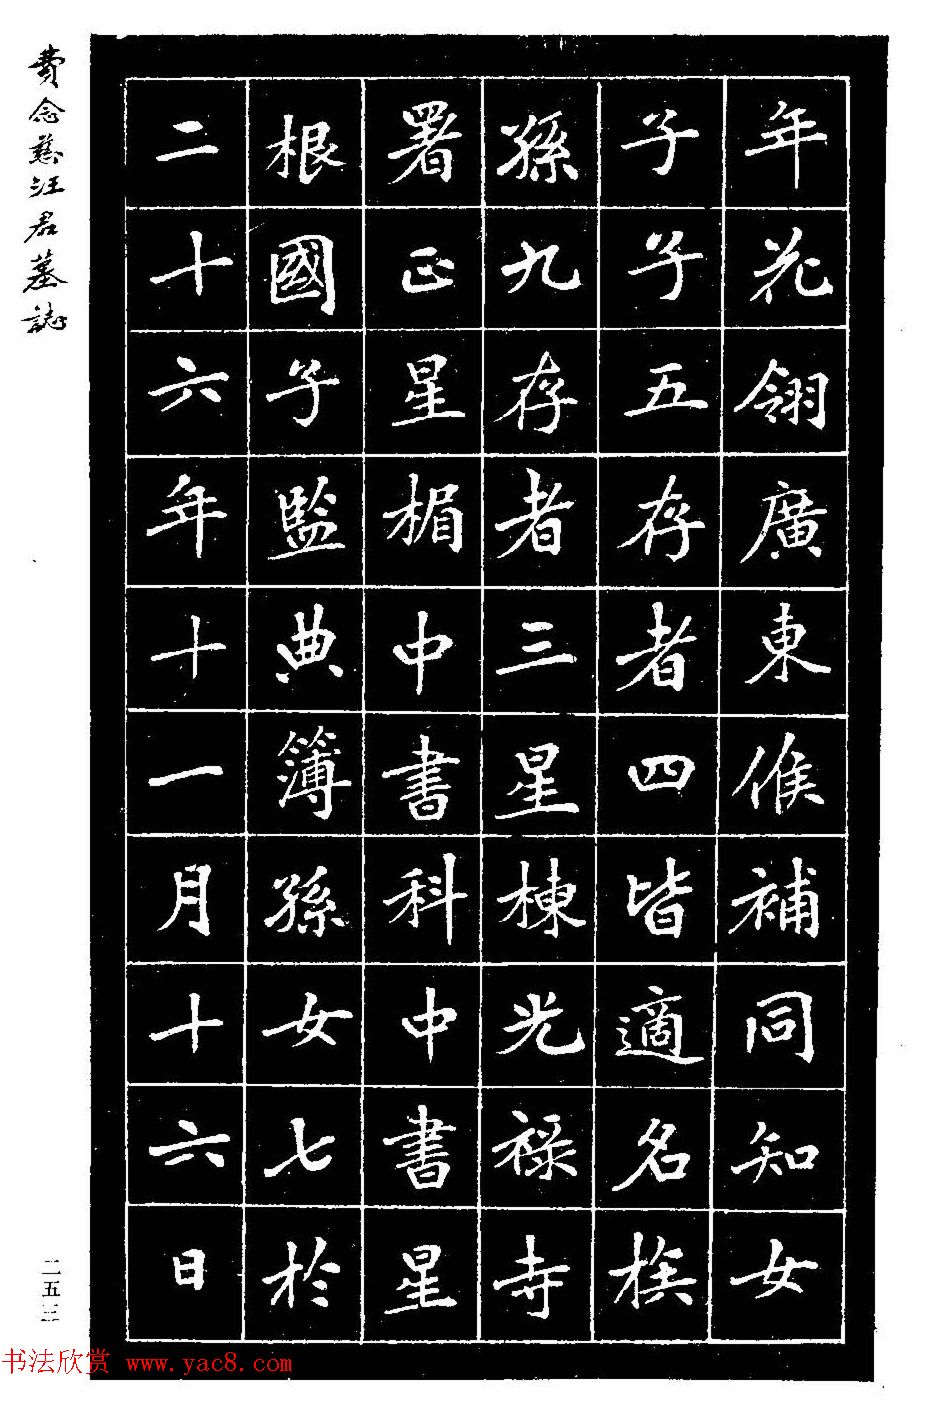 年花翎廣東候補同知女
子子五存者四皆適名族
孫九存者三星棟光祿寺
署正星楣中書科中書星
根國子監典簿孫女七於
二十六年十一月十六日
費念慈汪君墓誌
二五三
书法欣赏 www.yac8.com